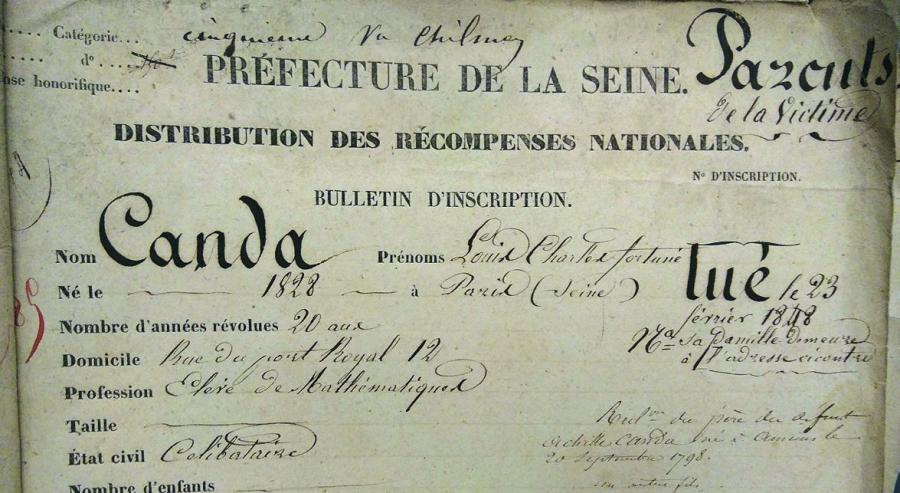 .... Catégorie... cinquième
Parents
..... d° ....
PRÉFECTURE DE LA SEINE.
de la Victime
honorifique....
DISTRIBUTION DES RÉCOMPENSES NATIONALES.
N° D'INSCRIPTION.
BULLETIN D'INSCRIPTION.
Nom Canda Prénoms Louis Charles fortuné
tué le 23
Né le 1828 à Paris (Seine)
février 1848
Nombre d'années révolues 20 ans
Na Sa famille demeure
Domicile Rue du port Royal 12
à l'adresse ci contre
Profession Elève de Mathématiques
Taille
du père du défunt
État civil Celibataire
achille Canda né à Amiens le
20 Septembre 1798.
Nombre d'enfants
un autre fils